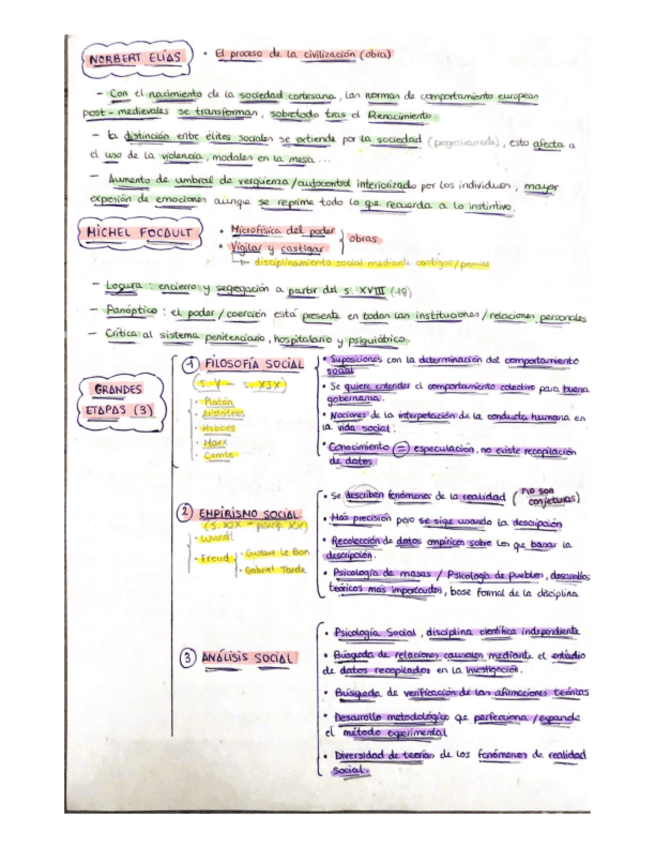 NORBERT ELÍAS
• El proceso de la civilización (obra)
- Con el nacimiento de la sociedad cortesana, las normas de comportamiento europeas
post-medievales se transforman, sobretodo tras el Renacimiento.
- La distinción entre élites sociales se extiende por la sociedad (progresivamente), esto afecta a
el uso de la violencia, modales en la mesa ...
- Aumento de umbral de vergüenza/autocontrol interiorizado por los individuos, mayor
expresión de emociones aunque se reprime todo lo que recuerda a lo instintivo.
MICHEL FOCAULT
• Microfísica del poder
• Vigilar y castigar
obras
disciplinamiento social mediante castigos/penas
- Locura: encierro y segregación a partir del s. XVIII (18)
- Panóptico: el poder/coerción está presente en todas las instituciones/relaciones personales
- Crítica al sistema penitenciario, hospitalario y psiquiátrico.
GRANDES
ETAPAS (3)
1 FILOSOFÍA SOCIAL
(s. V - s. XIX)
• Platón
• Aristóteles
• Hobbes
• Marx
• Comte
• Suposiciones con la determinación del comportamiento
social
• Se quiere entender el comportamiento colectivo para buena
gobernanza.
• Nociones de la interpretación de la conducta humana en
la vida social.
• Conocimiento = especulación, no existe recopilación
de datos
2 EMPIRISMO SOCIAL
(s. XIX - princip. XX)
• Wundt
• Freud
• Gustave Le Bon
• Gabriel Tarde
• Se describen fenómenos de la realidad (no son
conjeturas)
• Más precisión pero se sigue usando la descripción
• Recolección de datos empíricos sobre los que basar la
descripción.
• Psicología de masas / Psicología de pueblos, desarrollos
teóricos más importantes, base formal de la disciplina
3 ANÁLISIS SOCIAL
• Psicología Social, disciplina científica independiente
• Búsqueda de relaciones causales mediante el estudio
de datos recopilados en la investigación.
• Búsqueda de verificación de las afirmaciones teóricas
• Desarrollo metodológico qe perfecciona/expande
el método experimental
• Diversidad de teorías de los fenómenos de realidad
social.